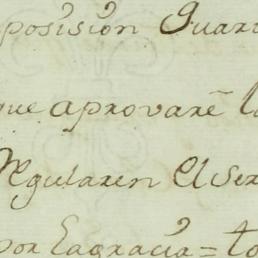 posision Guar
que aprovarẽ l
Regularen El Ser
por Eagracia = to